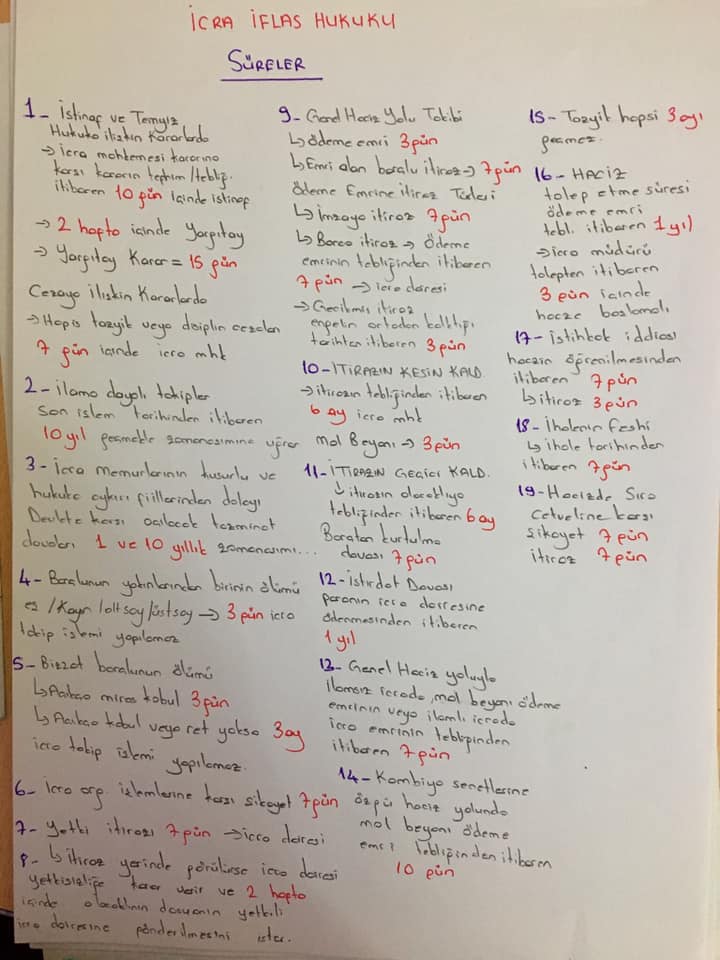 İCRA İFLAS HUKUKU
SÜRELER
1- İstinaf ve Temyiz
Hukuka ilişkin Kararlarda
→ İcra mahkemesi kararına
karşı kararın tefhim/tebliğ.
itibaren 10 gün içinde istinaf
→ 2 hafta içinde Yargıtay
→ Yargıtay Karar = 15 gün
Cezaya İlişkin Kararlarda
→ Hapis tazyik veya disiplin cezaları
7 gün içinde icra mhk
2- İlama dayalı takipler
son işlem tarihinden itibaren
10 yıl geçmekle zamanaşımına uğrar
3- İcra memurlarının kusurlu ve
hukuka aykırı fiillerinden dolayı
Devlete karşı açılacak tazminat
davaları 1 ve 10 yıllık zamanaşımı...
4- Borçlunun yakınlarından birinin ölümü
eş / Kayın / altsoy / üstsoy → 3 gün icra
takip işlemi yapılamaz
5- Bizzat borçlunun ölümü
↳ Açıkça miras kabul 3 gün
↳ Açıkça kabul veya ret yoksa 3 ay
icra takip işlemi yapılamaz.
6- İcra org. işlemlerine karşı şikayet 7 gün
7- Yetki itirazı 7 gün → icra dairesi
8- ↳ itiraz yerinde görülürse icra dairesi
yetkisizliğe karar verir ve 2 hafta
içinde alacaklının dosyanın yetkili
icra dairesine gönderilmesini ister.
9- Genel Haciz Yolu Takibi
↳ ödeme emri 3 gün
↳ Emri alan borçlu itiraz → 7 gün
Ödeme Emrine itiraz Türleri
↳ İmzaya itiraz 7 gün
↳ Borca itiraz → Ödeme
emrinin tebliğinden itibaren
7 gün → icra dairesi
→ Gecikmiş itiraz
engelin ortadan kalktığı
tarihten itibaren 3 gün
10- İTİRAZIN KESİN KALD.
→ itirazın tebliğinden itibaren
6 ay icra mhk
Mal Beyanı → 3 gün
11- İTİRAZIN GEÇİCİ KALD.
↳ itirazın alacaklıya
tebliğinden itibaren 6 ay
Borçtan kurtulma
davası 7 gün
12- İstirdat Davası
paranın icra dairesine
ödenmesinden itibaren
1 yıl
13- Genel Haciz yoluyla
ilamsız icrada, mal beyanı ödeme
emrinin veya ilamlı icrada
icra emrinin tebliğinden
itibaren 7 gün
14- Kambiyo senetlerine
özgü haciz yolunda
mal beyanı ödeme
emri tebliğinden itibaren
10 gün
15- Tazyik hapsi 3 ayı
geçmez.
16- HACİZ
talep etme süresi
ödeme emri
tebl. itibaren 1 yıl
→ icra müdürü
talepten itibaren
3 gün içinde
hacze başlamalı
17- İstihkak iddiası
haczin öğrenilmesinden
itibaren 7 gün
↳ itiraz 3 gün
18- İhalenin Feshi
↳ ihale tarihinden
itibaren 7 gün
19- Hacizde Sıra
Cetveline karşı
şikayet 7 gün
itiraz 7 gün